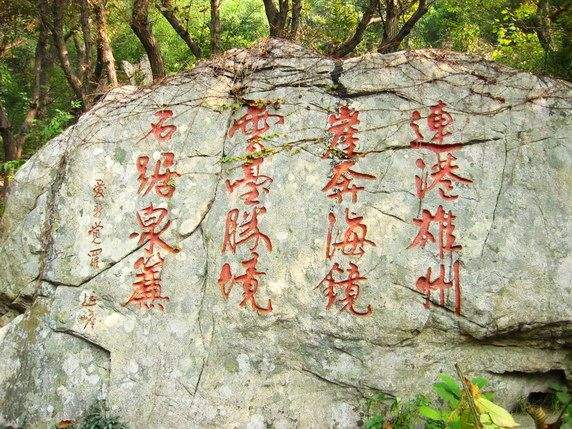 連港雄州
崖奔海鏡
雲臺勝境
石踞泉簾